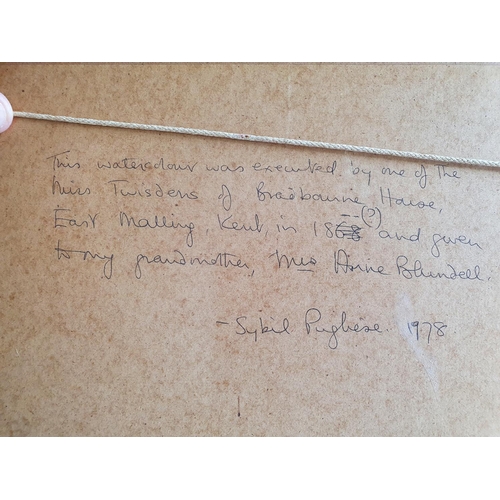 This watercolour was executed by one of the
Miss Twisdens of Bradbourne House,
East Malling, Kent, in 1868 (?) and given
to my grandmother, Mrs Blundell.
- Sybil 1978.